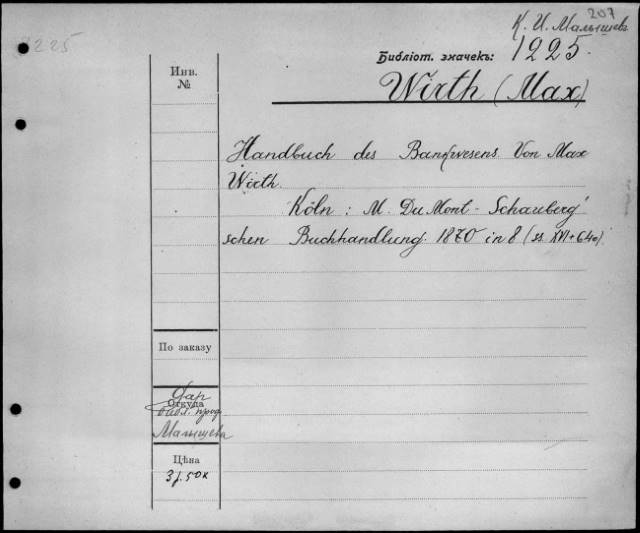 225
207
К. И. Малышевъ
Библіот. значекъ: 1225.
Инв.
№
Wirth (Max)
Handbuch des Bankwesens. Von Max
Wirth.
Köln: M. DuMont-Schauberg'
schen Buchhandlung. 1870 in 8 (ss XVI+640)
По заказу
Даръ
Откуда
библ. проф.
Малышева
Цѣна
3 р. 50 к